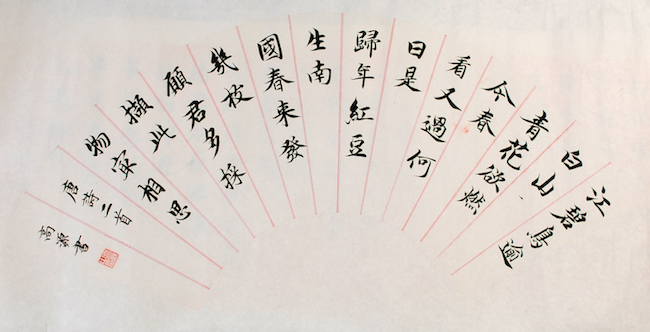 江碧鳥逾
白山
青花欲燃
今春
看又過何
日是
歸年紅豆
生南
國春來發
幾枝
願君多採
擷此
物㝡相思
唐詩二首
高 書